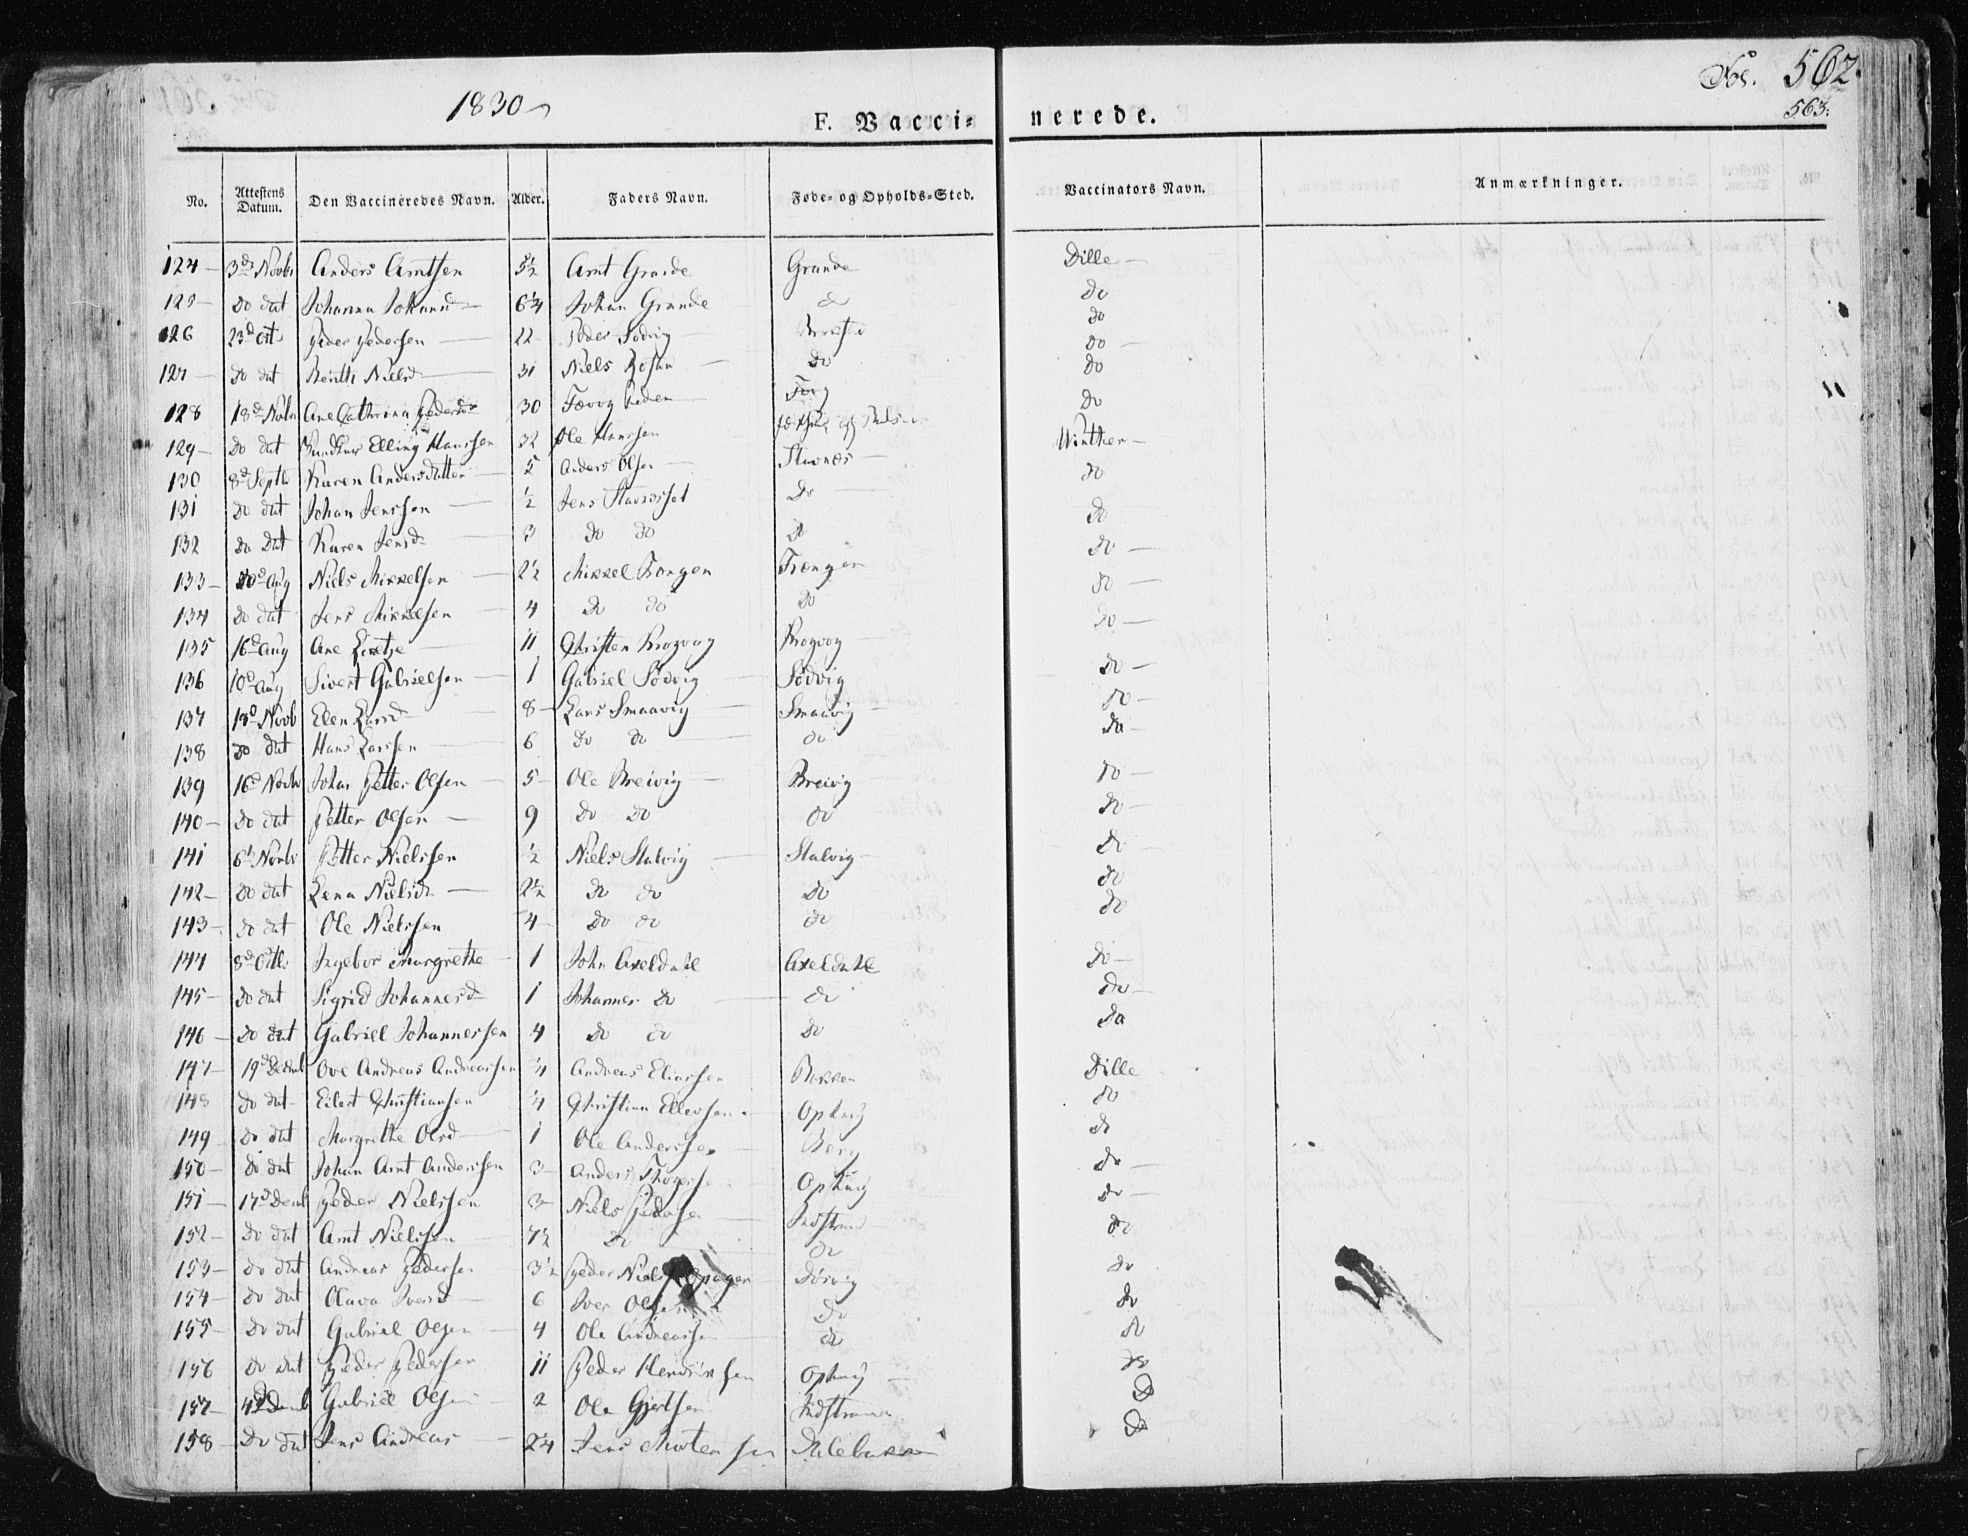 1830
F. Vacci= nerede.
Fol. 562.
563.
No. Attestens Datum. Den Vaccineredes Navn. Alder. Faders Navn. Føde- og Opholds-Sted. Vaccinators Navn. Anmærkninger.
124 3d Novbr Anders Arntsen 5½ Arnt Grande Grande Dille
125 do dat Johanna Johansd 6¼ Johan Grande do do
126 23d Peder Pedersen 22 Peder Sodvig do
127 do dat Berith Nielsd 31 Niels do do
128 18d Novbr Ane Cathrina 30 do
129 do dat Elling Hanssen 32 Ole Hanssen Winther
130 8d Septbr Karen Andersdatter 5 Anders Olsen Stavnes do
131 do dat Johan Jenssen ½ Jens do do
132 do dat Karen Jensd 3 do do do do
133 Aug Niels Mikkelsen 2½ Mikkel Trongen Trongen do
134 do dat Jens Mikkelsen 4 do do do do
135 16d Aug Ane 11 Christen Krogvog Krogvog do
136 10d Aug Sivert Gabrielsen 1 Gabriel Sødvig Sødvig do
137 18d Novb Elen Larsd 8 Lars Smaavig Smaavig do
138 do dat Hans Larssen 6 do do do
139 16d Novbr Johan Petter Olsen 5 Ole Breivig Breivig do
140 do dat Petter Olsen 9 do do do do
141 6t Novbr Petter Nielssen ½ Niels Slatvig Slatvig do
142 do dat Lena Nielsd 2½ do do do do
143 do dat Ole Nielssen 4 do do do do
144 8d Octbr Ingebor Margrethe 1 John Axeldahl Axeldahl do
145 do dat Sigrid Johannesd 1 Johannes do do do
146 do dat Gabriel Johannessen 4 do do do do
147 19d Decemb Ove Andreas Andreassen ¼ Andreas Eliassen Bekken Dille
148 do dat Eilert Christiansen ¼ Christian Ellevsen Ophaug do
149 do dat Margrethe Olsd 1 Ole Anderssen Berg do
150 do dat Johan Arnt Anderssen 3 Anders Ophaug do
151 17d Decmb Peder Nielssen 3 Niels Pedersen Indstrand do
152 do dat Arnt Nielssen 7½ do do do
153 do dat Andreas Pedersen 3½ Peder Niels do
154 do dat Olava Iversd 6 Iver Olsen do do
155 do dat Gabriel Olsen 4 Ole Andreassen do do
156 do dat Peder Pedersen 11 Peder Henriksen Ophaug do
157 Decmb Gabriel Olsen 2 Ole Gjertsen Indstrand do
158 do dat Jens Andreas 2¼ Jens Mortensen do